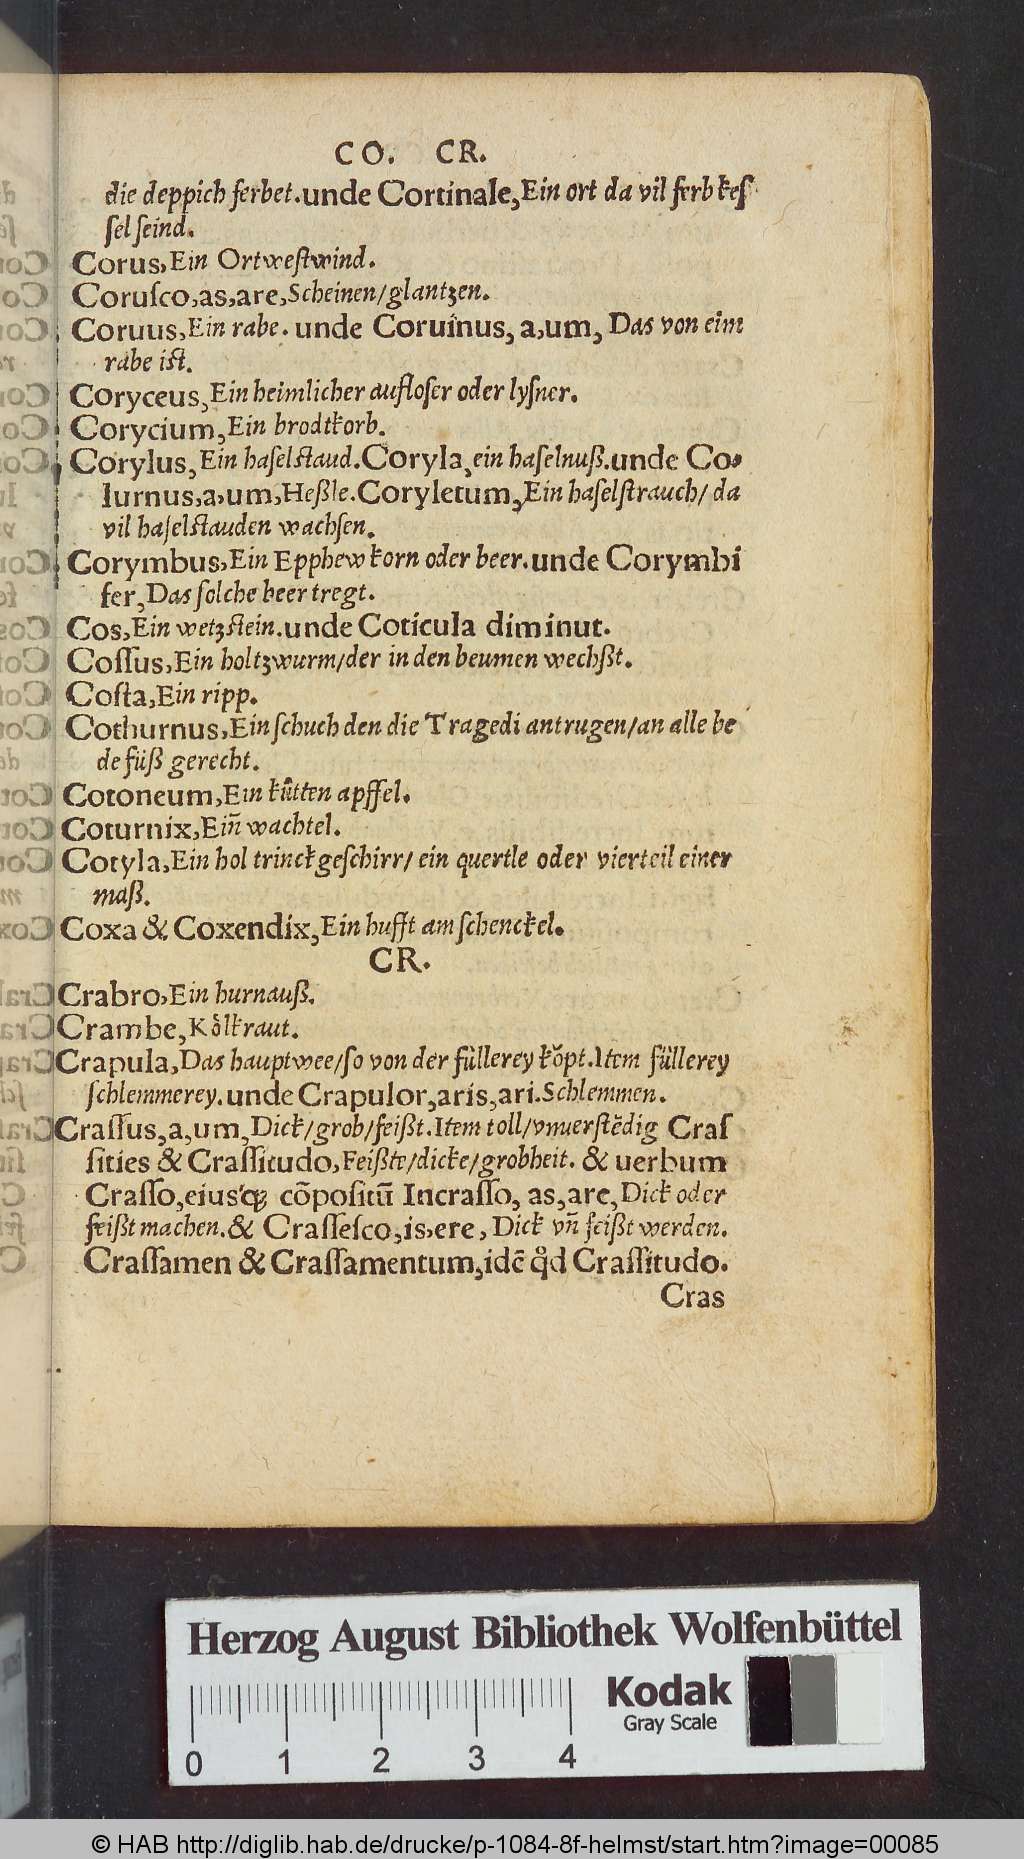 CO. CR.
die deppich ferbet. unde Cortinale, Ein ort da vil ferb keſ
ſel ſeind.
Corus, Ein Ortweſtwind.
Coruſco, as, are, Scheinen/glantzen.
Coruus, Ein rabe. unde Coruinus, a, um, Das von eim
rabe iſt.
Coryceus, Ein heimlicher aufloſer oder lyſner.
Corycium, Ein brodtkorb.
Corylus, Ein haſelſtaud. Coryla, ein haſelnuß. unde Co⸗
lurnus, a, um, Heßle. Coryletum, Ein haſelſtrauch/ da
vil haſelſtauden wachſen.
Corymbus, Ein Epphew korn oder beer. unde Corymbi
fer, Das ſolche beer tregt.
Cos, Ein wetzſtein. unde Coticula diminut.
Coſſus, Ein holtzwurm/der in den beumen wechßt.
Coſta, Ein ripp.
Cothurnus, Ein ſchuch den die Tragedi antrugen/an alle be
de füß gerecht.
Cotoneum, Ein kütten apffel.
Coturnix, Eiñ wachtel.
Cotyla, Ein hol trinckgeſchirr/ ein quertle oder vierteil einer
maß.
Coxa & Coxendix, Ein hufft am ſchenckel.
CR.
Crabro, Ein hurnauß.
Crambe, Kölkraut.
Crapula, Das hauptwee/ſo von der füllerey kōpt. Item füllerey
ſchlemmerey. unde Crapulor, aris, ari. Schlemmen.
Craſſus, a, um, Dick/grob/feißt. Item toll/vnuerſtēdig Craſ
ſities & Craſſitudo, Feißte/dicke/grobheit. & uerbum
Craſſo, eiusq́ꝫ cōpoſitū Incraſſo, as, are, Dick oder
feißt machen. & Craſſeſco, is, ere, Dick vñ feißt werden.
Craſſamen & Craſſamentum, idē qd̊ Craſſitudo.
Cras
Herzog August Bibliothek Wolfenbüttel
Kodak
Gray Scale
0 1 2 3 4
© HAB http://diglib.hab.de/drucke/p-1084-8f-helmst/start.htm?image=00085